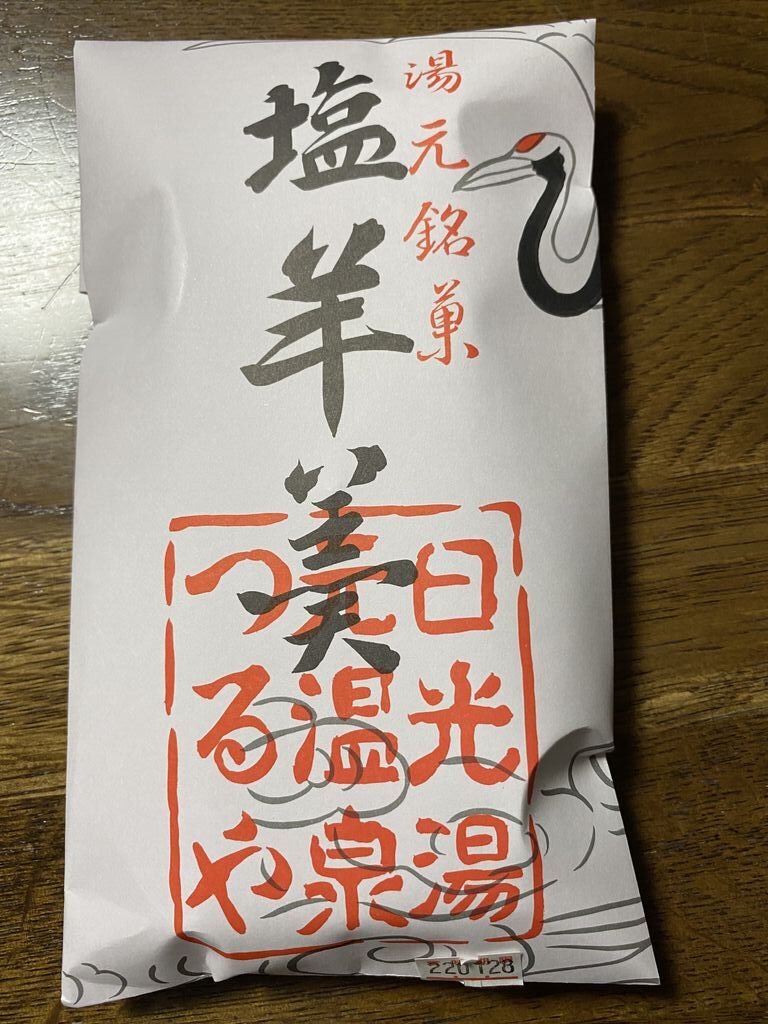 湯元銘菓
塩羊羹
日光湯
元温泉
つるや
220128